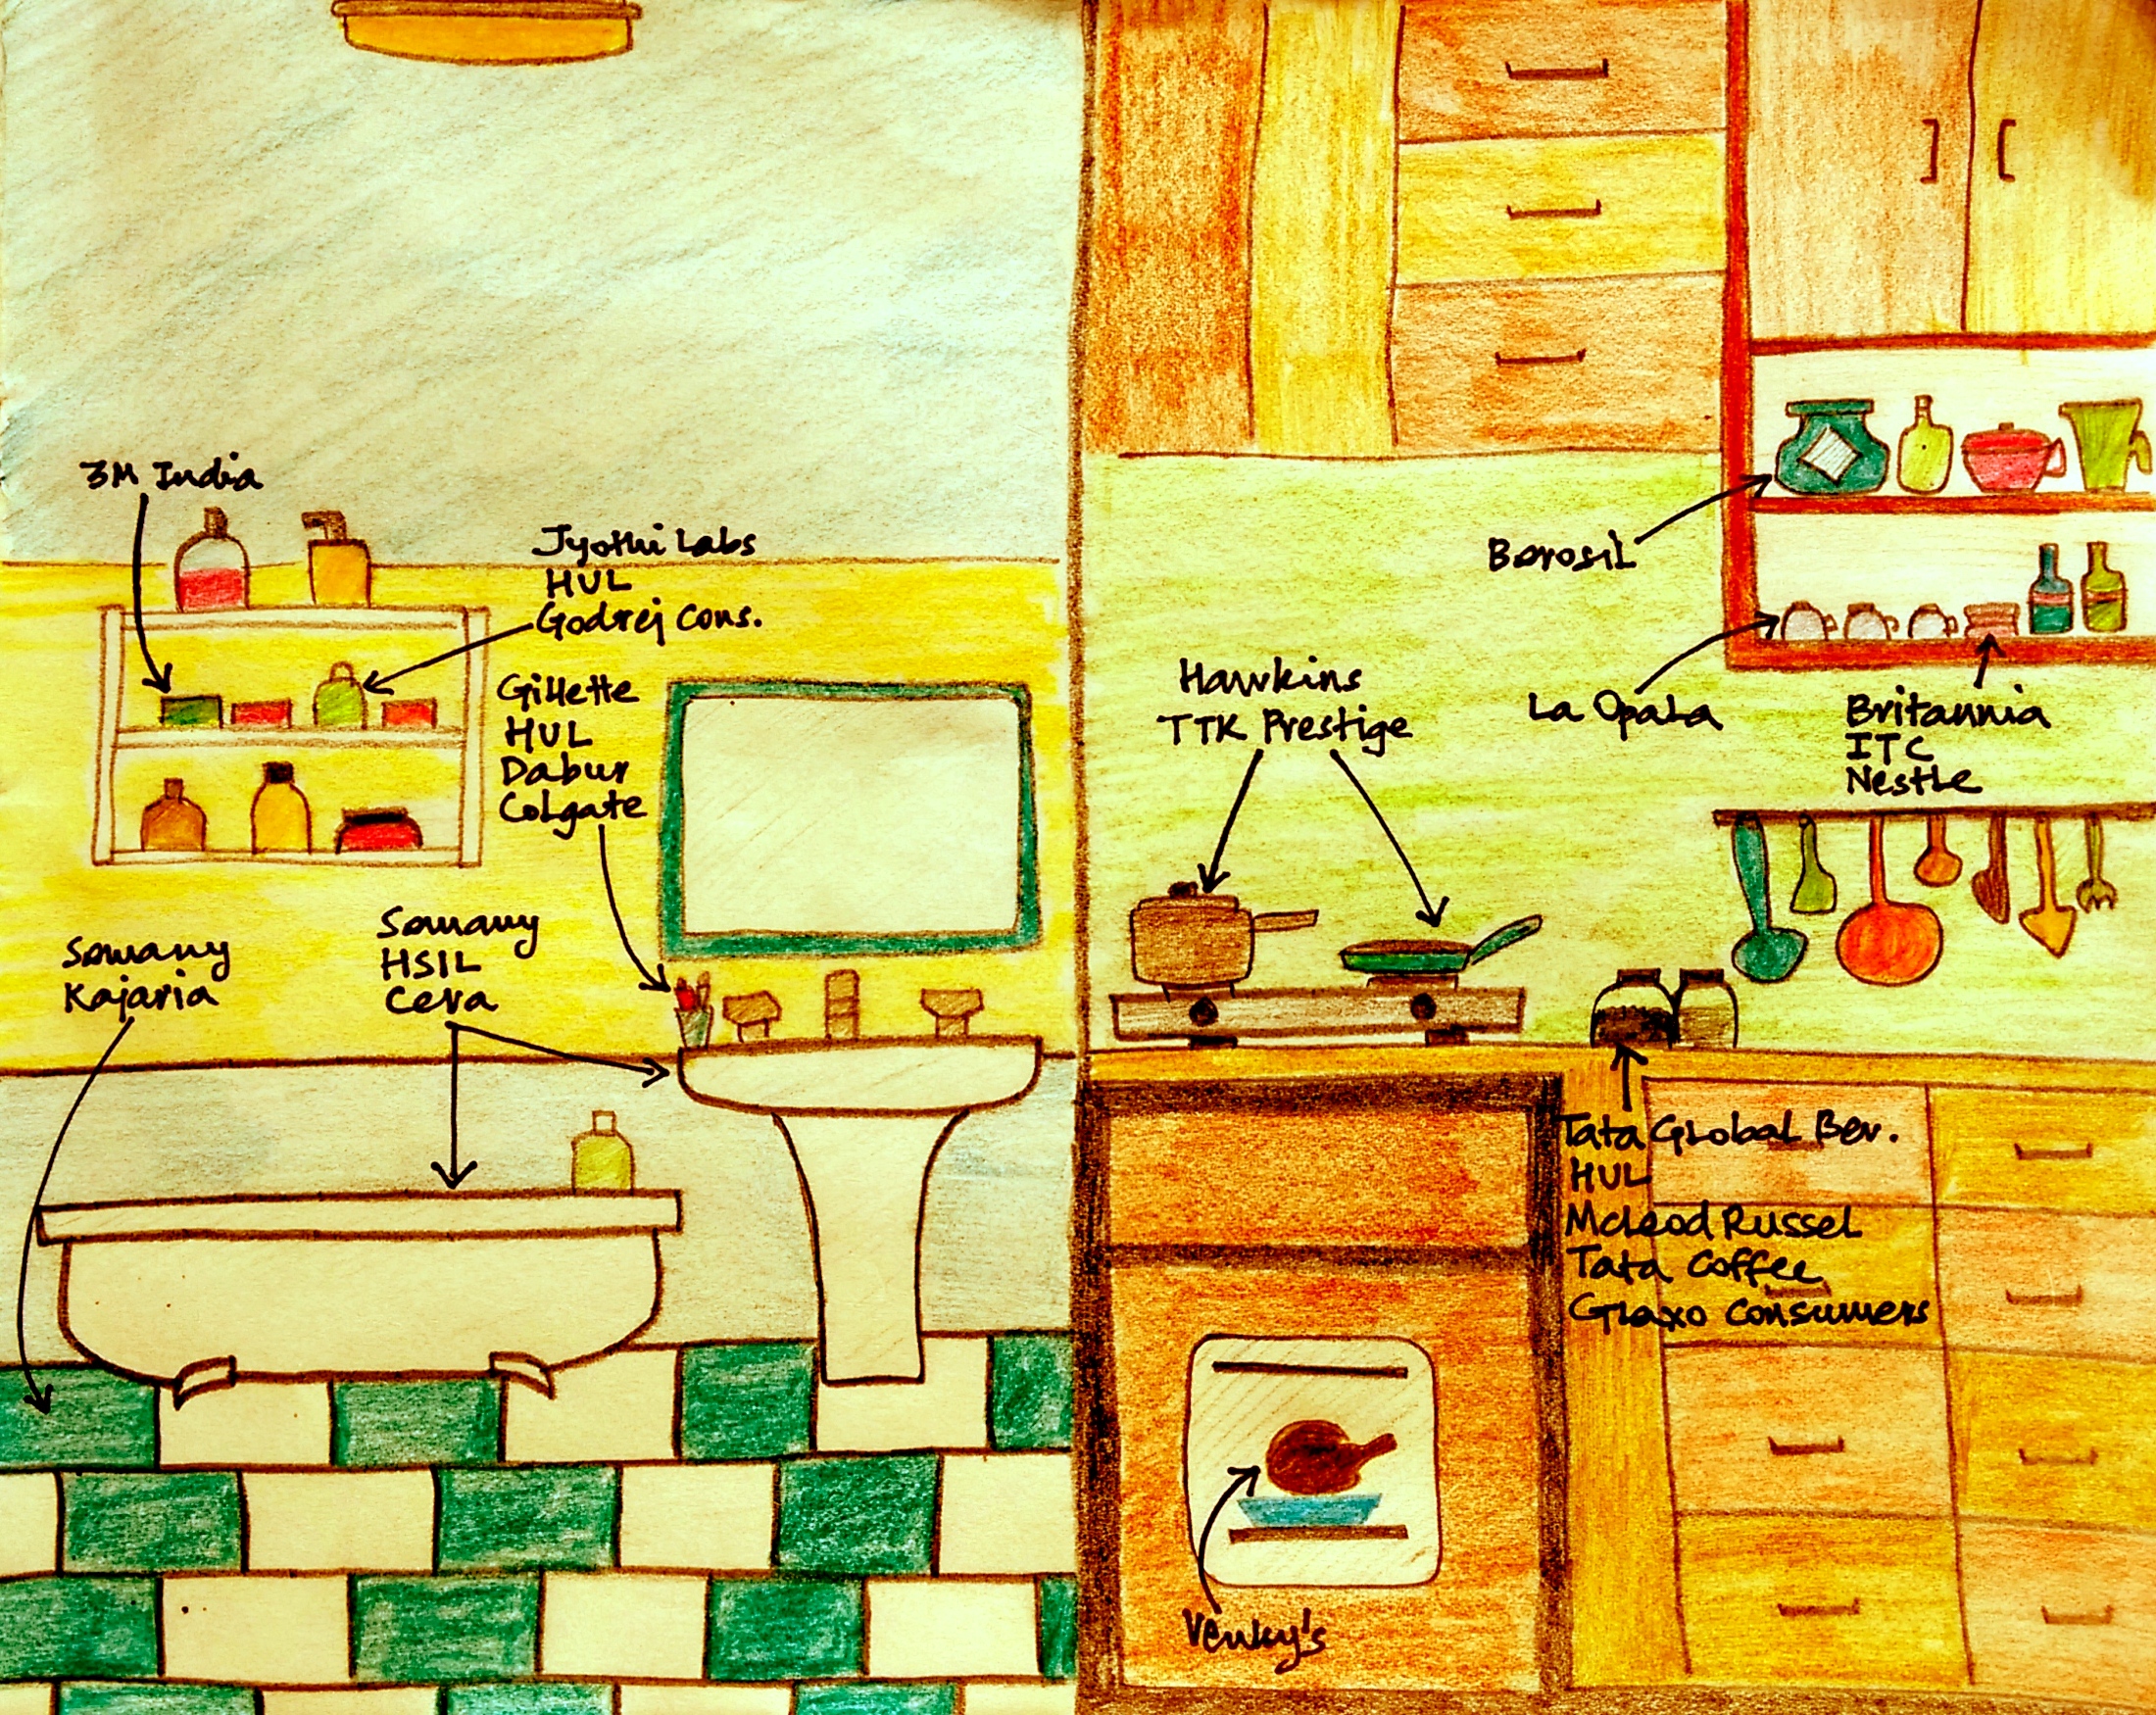 3M India
Jyothi Labs
HUL
Godrej Cons.
Gillette
HUL
Dabur
Colgate
Somany
Kajaria
Somany
HSIL
Cera
Hawkins
TTK Prestige
Borosil
La Opala
Britannia
ITC
Nestle
Tata Global Bev.
HUL
Mcleod Russel
Tata Coffee
Glaxo Consumers
Venky's